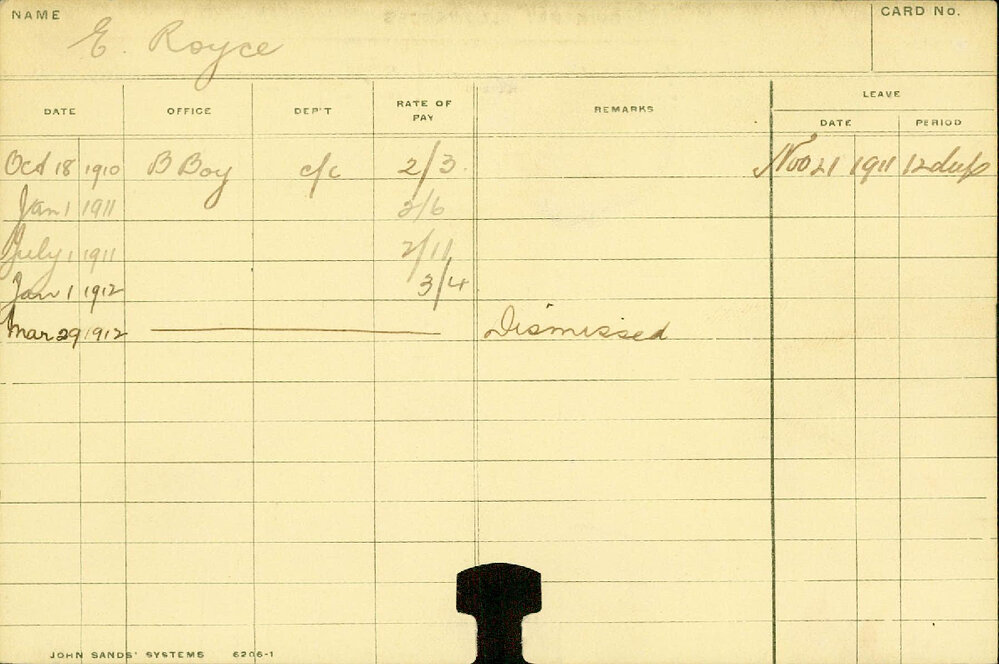 NAME
E. Royce
CARD No.
DATE OFFICE DEP'T RATE OF PAY REMARKS LEAVE
DATE PERIOD
Oct 18 1910 B Boy c/c 2/3 Nov 21 1911 12 days
Jan 1 1911 2/6
July 1 1911 2/11
Jan 1 1912 3/4
Mar 29 1912 Dismissed
JOHN SANDS' SYSTEMS 6206-1